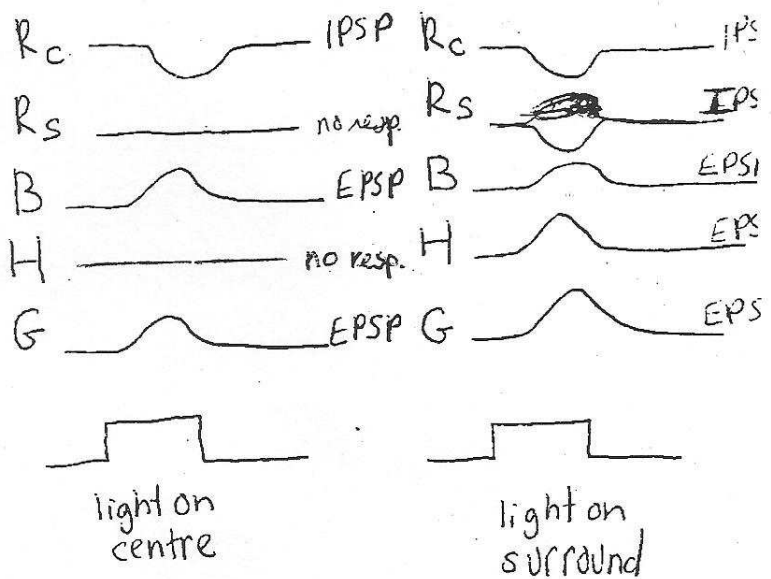 Rc IPSP
Rs no resp.
B EPSP
H no resp.
G EPSP
light on
centre
Rc IPS
Rs IPS
B EPSP
H EPS
G EPS
light on
surround